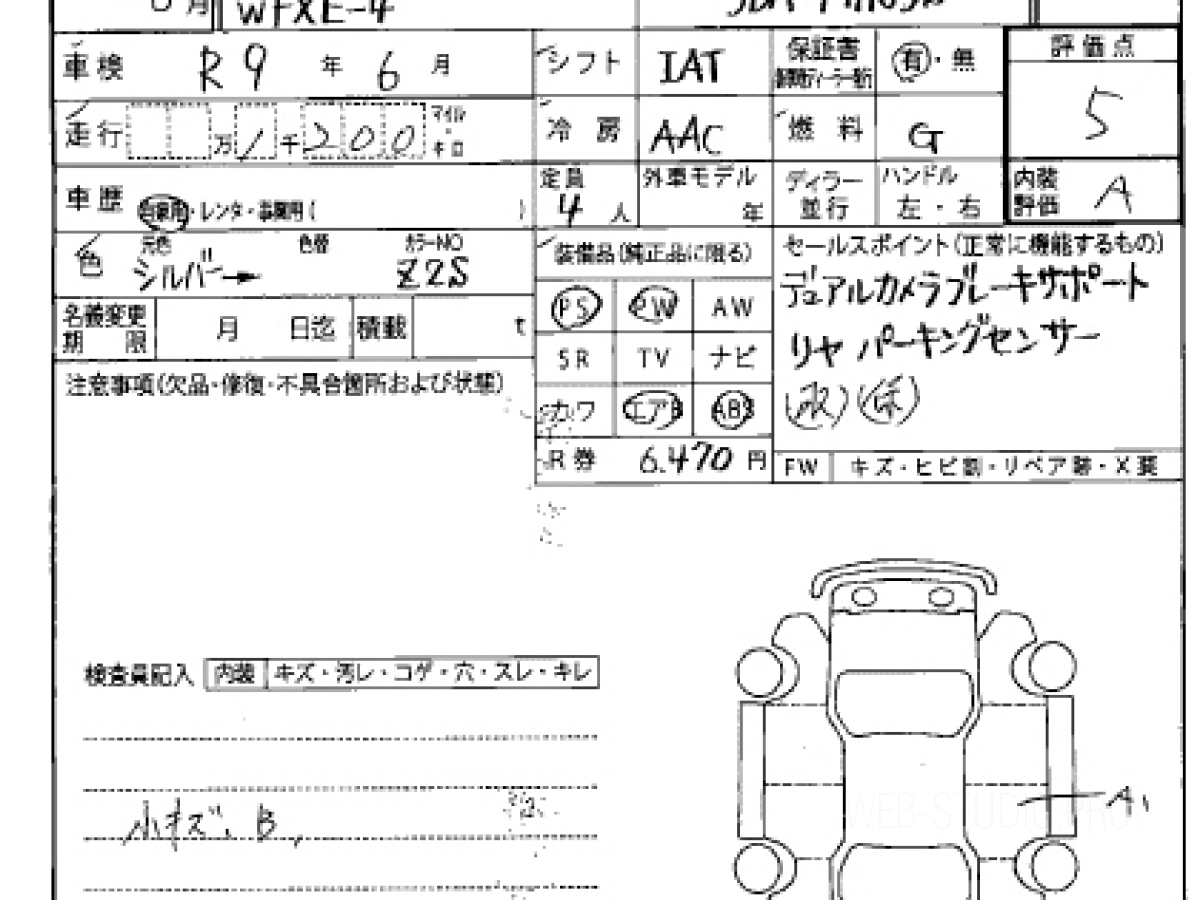 月 WFXE-4
車検 R9年6月 シフト IAT 保証書 有・無 評価点
走行 万1千200 マイル・キロ 冷房 AAC 燃料 G 5
車歴 自家用・レンタ・事業用( ) 定員 4人 外車モデル 年 ディラー並行 ハンドル 左・右 内装評価 A
色 元色 シルバー→ 色替 カラーNO Z2S
装備品(純正品に限る) セールスポイント(正常に機能するもの)
デュアルカメラブレーキサポート
名義変更期限 月 日迄 積載 t PS PW AW
リヤパーキングセンサー
SR TV ナビ
注意事項(欠品・修復・不具合箇所および状態)
カワ エアB ABS (取)(保)
R券 6.470円 FW キズ・ヒビ割・リペア跡・X要
検査員記入 内装 キズ・汚レ・コゲ・穴・スレ・キレ
小キズ、B,
A1
WEB-STUDIO PRO